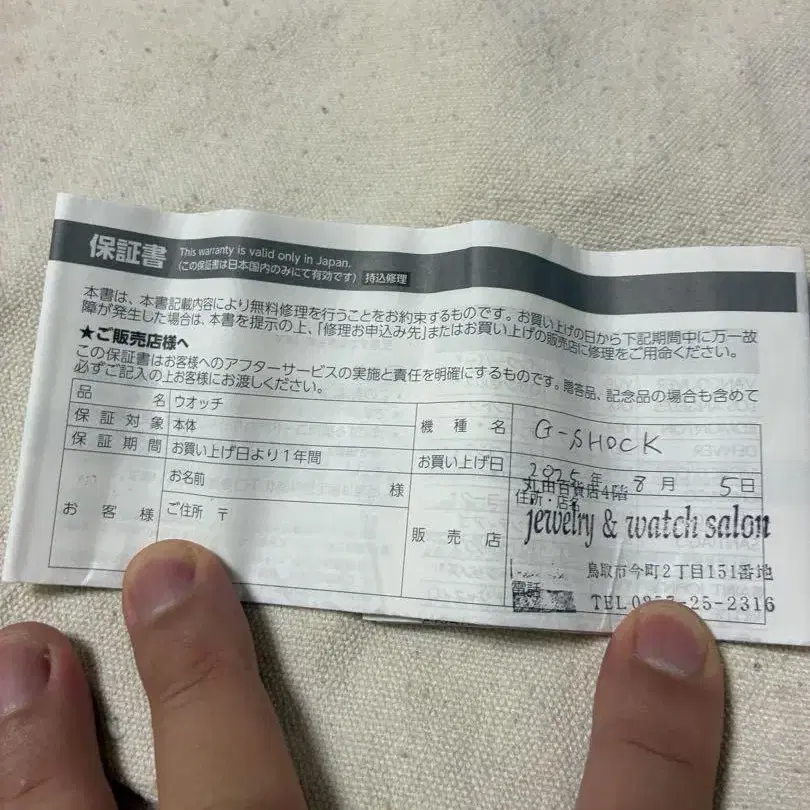 保証書
This warranty is valid only in Japan.
(この保証書は日本国内のみにて有効です) 持込修理
本書は、本書記載内容により無料修理を行うことをお約束するものです。お買い上げの日から下記期間中に万一故
障が発生した場合は、本書を提示の上、「修理お申込み先」またはお買い上げの販売店に修理をご用命ください。
★ご販売店様へ
この保証書はお客様へのアフターサービスの実施と責任を明確にするものです。贈答品、記念品の場合も含めて
必ずご記入の上お客様にお渡しください。
品名 ウオッチ
機種名 G-SHOCK
保証対象 本体
保証期間 お買い上げ日より1年間
お買い上げ日 2025年8月5日
お客様
お名前 様
ご住所 〒
販売店
住所・店名
百貨店4階
jewelry & watch salon
鳥取市今町2丁目151番地
電話
TEL 25-2316